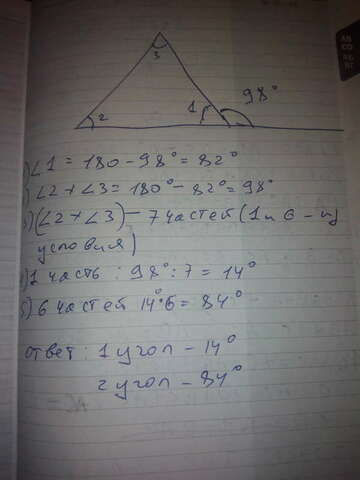 3
98°
1
2
∠1 = 180 - 98° = 82°
∠2 + ∠3 = 180° - 82° = 98°
(∠2 + ∠3) - 7 частей (1 и 6 - из
условия)
1 часть : 98° : 7 = 14°
5) 6 частей 14°·6 = 84°
ответ : 1 угол - 14°
2 угол - 84°